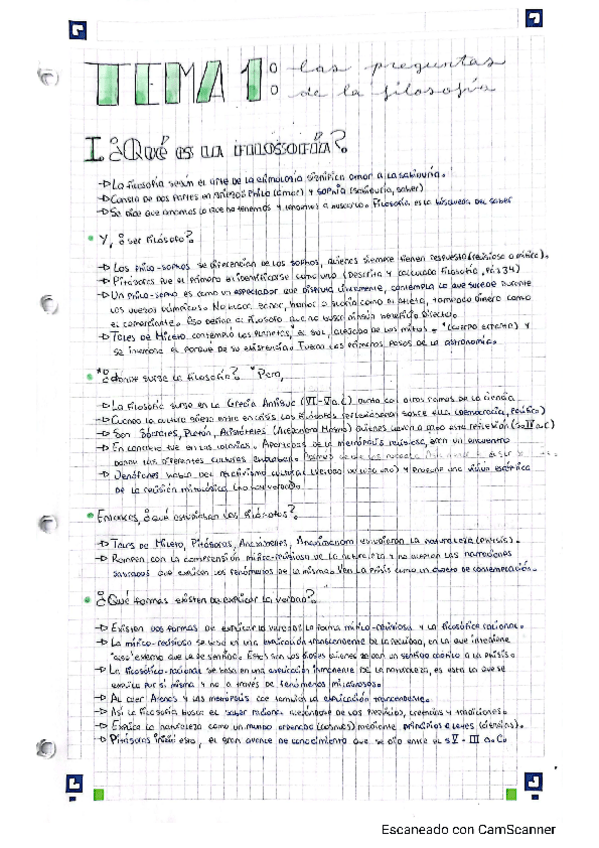 TEMA 1: las preguntas
de la filosofía
I ¿Qué es la filosofía?
→ La filosofía según el arte de la etimología significa amor a la sabiduría.
→ Consta de dos partes en griego: Philo (amor) y sophia (sabiduría, saber)
→ Se dice que amamos lo que no tenemos y vamos a buscarlo. Filosofía es la búsqueda del saber
• Y, ¿ser filósofo?
→ Los philo-sophos se diferencian de los sophos, quienes siempre tienen respuesta (religiosa o mítica).
→ Pitágoras fue el primero en identificarse como uno (Descrita y calculado filosofía, pág 34)
→ Un philo-sopho es como un espectador que disfruta libremente, contempla lo que sucede durante
los juegos olímpicos. No busca ganar, honor o gloria como el atleta, tampoco dinero como
el comerciante. Eso define al filósofo que no busca ningún beneficio directo.
→ Tales de Mileto contempló los planetas, el sol, alejado de los mitos. *(cuerpo externo) y
se interesó el porqué de su existencia. Fueron los primeros pasos de la astronomía.
• *¿dónde surge la filosofía? *Pero,
→ La filosofía surge en la Grecia Antigua (VI-V a.C) junto con otras ramas de la ciencia
→ Cuando la cultura griega entra en crisis, los filósofos reflexionaron sobre ella (democracia, político)
→ Son Sócrates, Platón, Aristóteles (Alejandro Magno) quienes llevan a cabo esta reflexión (s. IV a.C)
→ En concreto fue en las colonias. Apartadas de la menópolis religiosa, eran un encuentro
donde las diferentes culturas
→ Jenófanes habla del relativismo cultural y una visión escéptica
de la religión mitológica
• Entonces, ¿qué estudiaban los filósofos?
→ Tales de Mileto, Pitágoras, Anaxímenes, Anaximandro estudiaron la naturaleza (physis).
→ Rompen con la comprensión mítico-religiosa de la naturaleza y no aceptan las narraciones
sagradas que explican los fenómenos de la misma. Ven la physis como un objeto de contemplación.
• ¿Qué formas existen de explicar la verdad?
→ Existen dos formas de explicar la verdad: la forma mítico-religiosa y la filosófica racional.
→ La mítico-religioso se basa en una explicación trascendente de la realidad, en la que interviene
"algo" externo que le da sentido. Estos son los dioses quienes dan un sentido caótico a la physis.
→ La filosófico-racional se basa en una explicación inmanente de la naturaleza, es esta la que se
explica por sí misma y no a través de fenómenos milagrosos.
→ Al caer Atenas y las menópolis con también la explicación trascendente.
→ Así la filosofía busca el saber racional alejándose de los prejuicios, creencias y tradiciones.
→ Explica la naturaleza como un mundo ordenado (cosmos) mediante principios e leyes (ciencias).
→ Pitágoras inició esto, el gran avance de conocimiento que se dio entre el s V - III a.C.
Escaneado con CamScanner